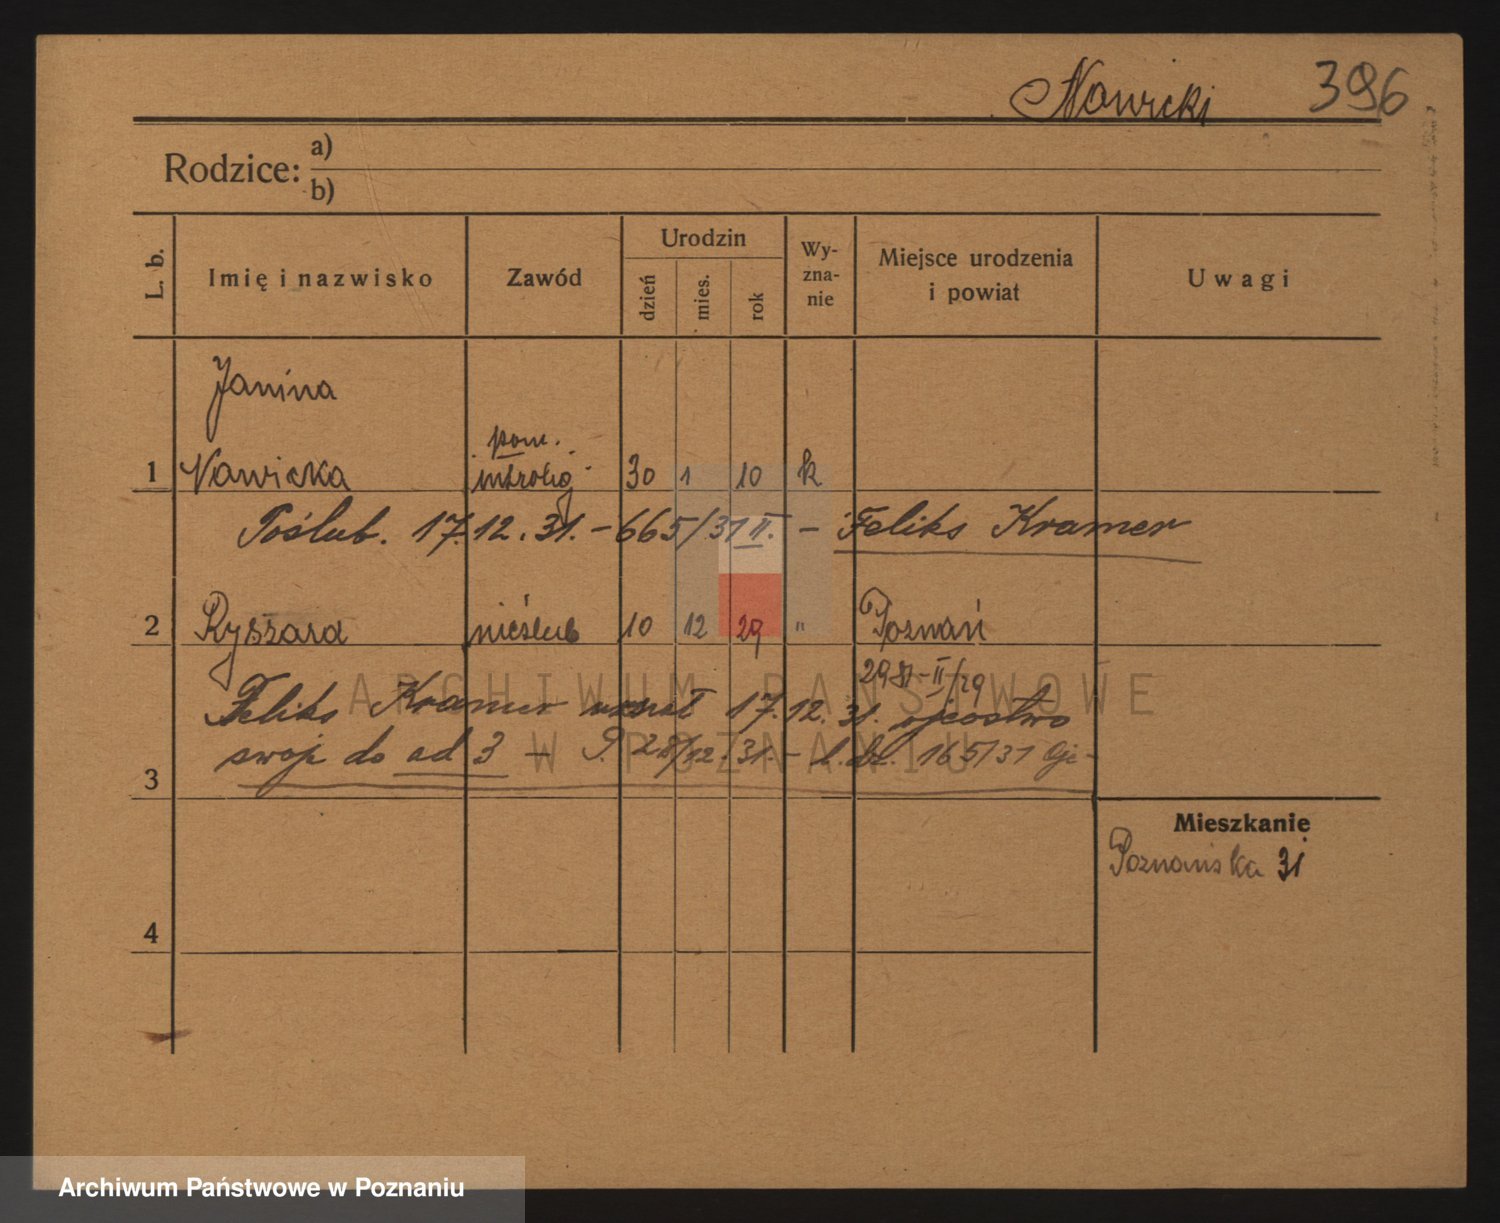 Nowicki 396
Rodzice: a)
b)
L. b.
Imię i nazwisko
Zawód
Urodzin
dzień
mies.
rok
Wy-
zna-
nie
Miejsce urodzenia
i powiat
Uwagi
Janina
pom.
1 Nowicka introlig. 30 1 10 k
Poślub. 17.12.31. – 665/31 II. – Feliks Kramer
2 Ryszard nieślub 10 12 29 " Poznań
2981-II/29
Feliks Kramer uznał 17.12.31. ojcostwo
swoje do ad 3 – P. 28/12.31. – l.dz. 165/31
3
Mieszkanie
Poznańska 31
4
ARCHIWUM PAŃSTWOWE
W POZNANIU
Archiwum Państwowe w Poznaniu